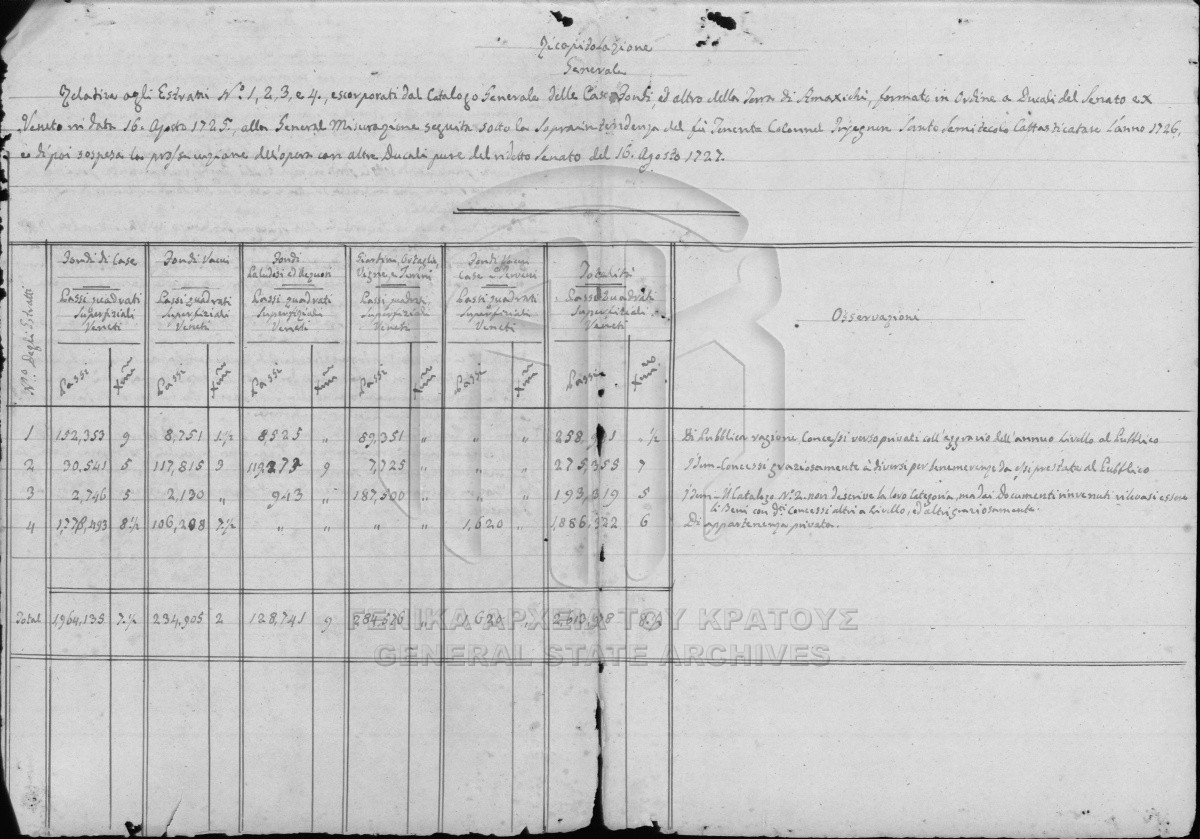 Ricapitolazione
Generale
Relativa agli Estratti N.º 1, 2, 3, e 4., escorporati dal Catalogo Generale delle Case Fondi, ed altro della Terra di Amaxichi, formato in Ordine a Ducali del Senato ex
Veneto in data 16. Agosto 1725, alla General Misurazione seguita sotto la Sopraintendenza del fù Tenente Colonnel Ingegner Santo Semitecolo Cattasticatore l'anno 1726,
e di poi sospesa la prosecuzione dell'opera con altre Ducali pure del detto Senato del 16. Agosto 1727.
N.º Degli Estratti
Fondi di Case
Passi quadrati
Superfiziali
Veneti
Passi
Fondi Vacui
Passi quadrati
Superfiziali
Veneti
Passi
Fondi
Paludosi ed Acquosi
Passi quadrati
Superfiziali
Veneti
Passi
Giardini, Ortaglie,
Vigne, e Terreni
Passi quadrati
Superfiziali
Veneti
Passi
Fondi Vacui
Case e Terreni
Passi quadrati
Superfiziali
Veneti
Passi
Totalità
Passi Quadrati
Superfiziali
Veneti
Passi
Osservazioni
1 152,353 9 8,751 1½ 8,525 „ 89,351 „ „ „ 258, 1 ½ Di Pubblica ragione, Concessi verso privati coll'aggravio dell'annuo livello al Pubblico
2 30,541 5 117,815 9 119,273 9 7,725 „ „ „ 275,353 7 Idem Concessi graziosamente à diversi per benemerenze da essi prestate al Pubblico
3 2,746 5 2,130 „ 943 „ 187,500 „ „ „ 193,319 5 Idem Il Catalogo N.º 2. non descrive la loro Categoria, ma dai Documenti rinvenuti rilevasi essere
li Beni con Concessi altri a livello, ed altri graziosamente.
4 1,778,493 8½ 106,208 7½ „ „ „ „ 1,620 „ 1,886,322 6 Di appartenenza privata.
Total 1,964,135 7½ 234,905 2 128,741 9 284,576 „ 1,620 „ 2,613,978 8½
ΓΕΝΙΚΑ ΑΡΧΕΙΑ ΤΟΥ ΚΡΑΤΟΥΣ
GENERAL STATE ARCHIVES